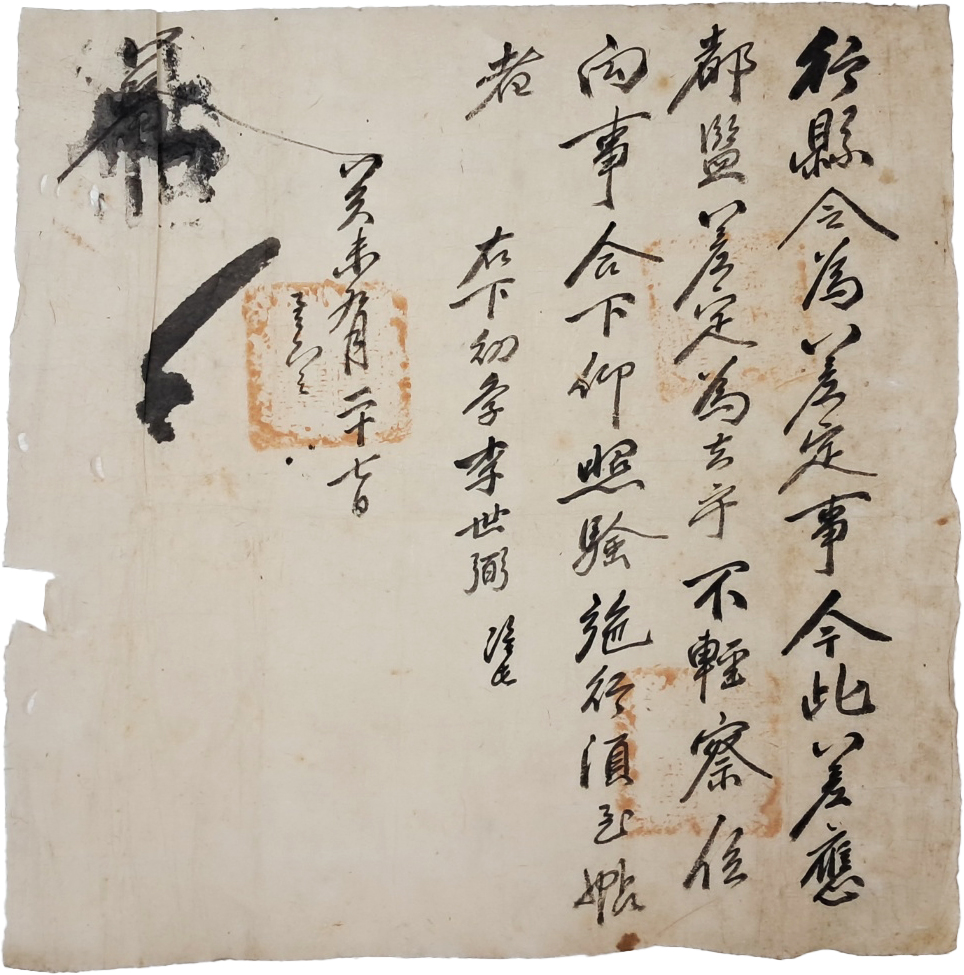 行縣令為差定事今此差應
都監差定為去乎不輕察任
向事合下仰照驗施行須至帖
者
右下幼學李世弼 准此
癸未有月二十七日
帖